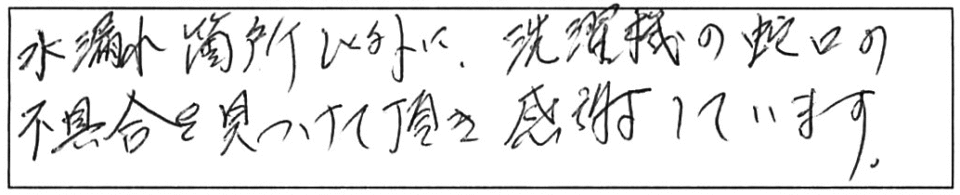 水漏れ箇所以外に、洗濯機の蛇口の
不具合を見つけて頂き感謝しています。